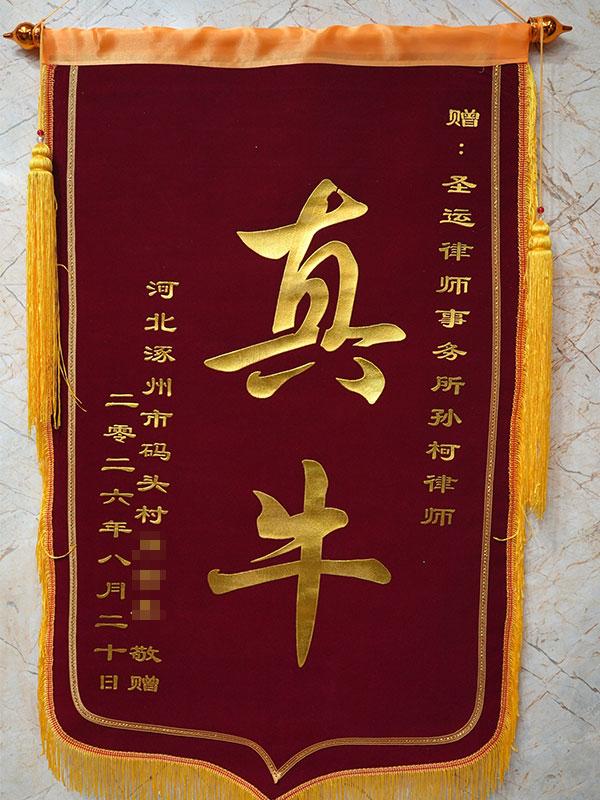 赠：圣运律师事务所孙柯律师
真牛
河北涿州市码头村
敬赠
二零二六年八月二十日